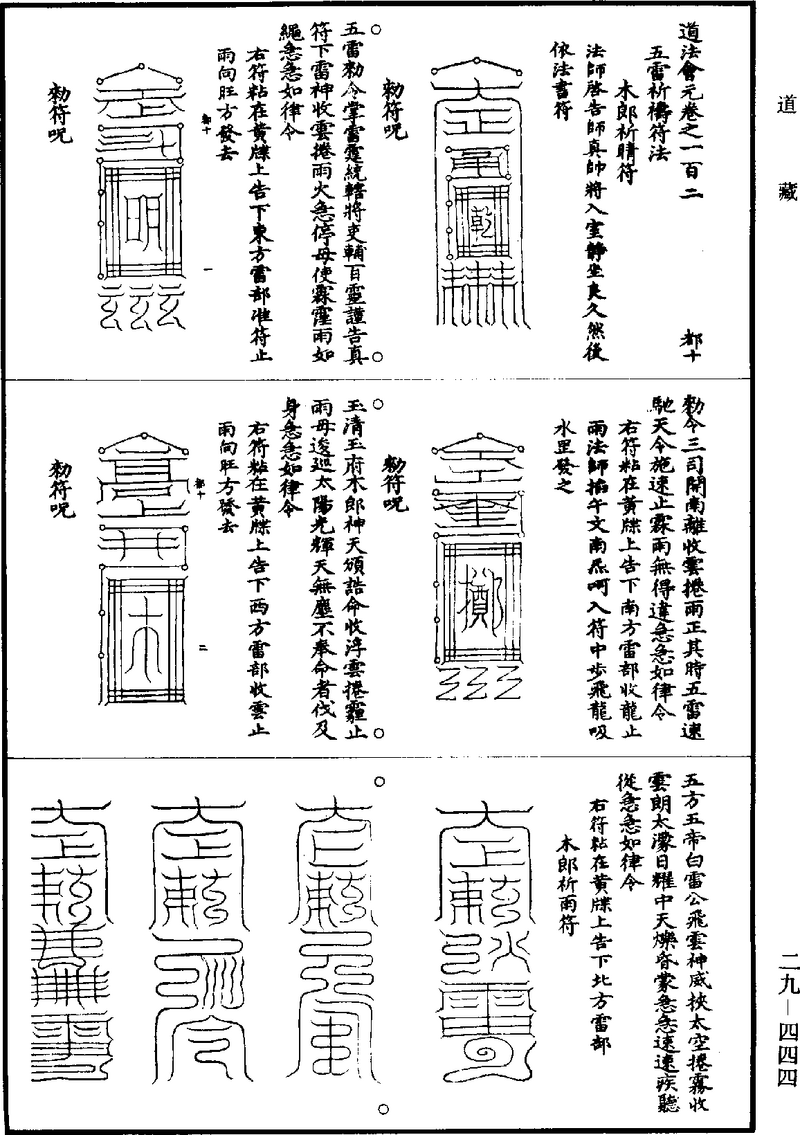 道藏
道法會元卷之一百二
都十
五雷祈禱符法
木郎祈晴符
法師啓告師真帥將入室靜坐良久然後
依法書符
乾
勑符呪
五雷勑令掌雷霆統轄將吏輔百靈謹告真
符下雷神收雲捲雨火急停毋使霖霪雨如
繩急急如律令
右符粘在黃牒上告下東方雷部准符止
雨向旺方發去
都十
一
明
勑符呪
勑令三司開南離收雲捲雨正其時五雷速
馳天令施速止霖雨無得違急急如律令
右符粘在黃牒上告下南方雷部收龍止
雨法師掐午文南炁呵入符中步飛龍吸
水罡發之
勑符呪
玉清王府木郎神天頒誥命收浮雲捲霾止
雨毋逡巡太陽光輝天無塵不奉命者伐及
身急急如律令
右符粘在黃牒上告下西方雷部收雲止
雨向旺方發去
都十
二
勑符呪
五方五帝白雷公飛雲神威挾太空捲霧收
雲朗太濛日耀中天爍昏蒙急急速速疾聽
從急急如律令
右符粘在黃牒上告下北方雷部
木郎祈雨符
二九—四四四